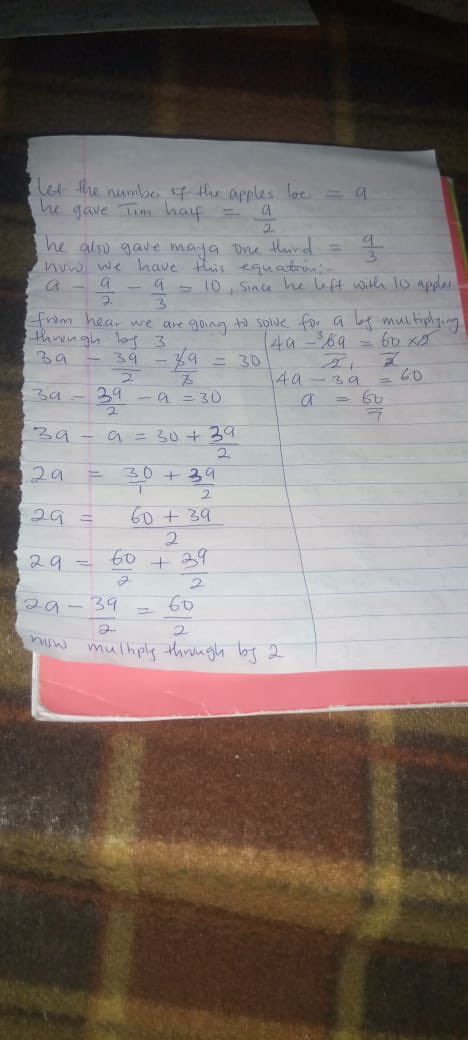 Let the number of the apples be = a
he gave Tim half = a/2
he also gave maya one third = a/3
now we have this equation:-
a - a/2 - a/3 = 10, since he left with 10 apples
from hear we are going to solve for a by multiplying
through by 3
3a - 3a/2 - 3a/3 = 30
3a - 3a/2 - a = 30
3a - a = 30 + 3a/2
2a = 30/1 + 3a/2
2a = 60 + 3a/2
2a = 60/2 + 3a/2
2a - 3a/2 = 60/2
now multiply through by 2
4a - 6a/2 = 60 x 2/2
4a - 3a = 60
a = 60